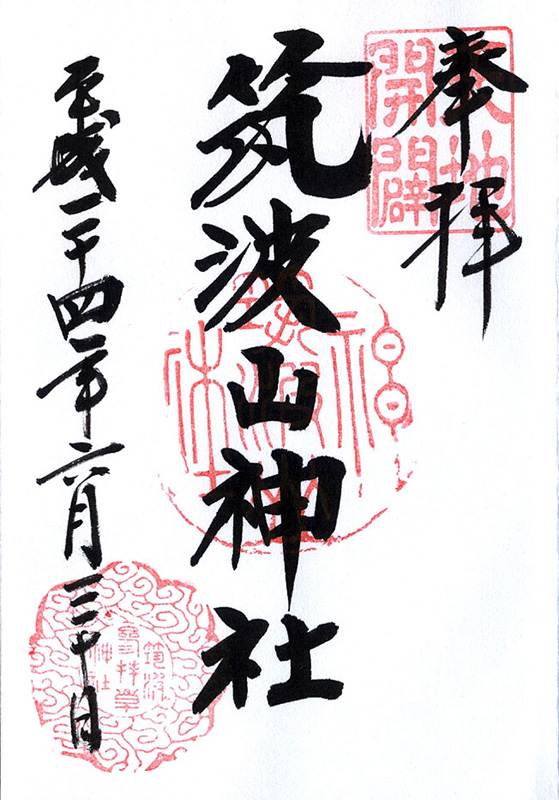 奉拝
天地
開闢
筑波山神社
平成二十四年六月三十日
筑波
神社